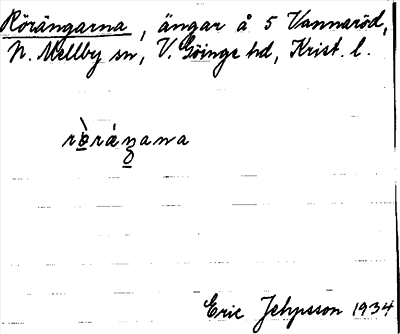 Rörängarna, ängar å 5 Vannaröd,
N. Mellby sn, V. Göinge hd, Krist. l.
Eric Jehpsson 1934